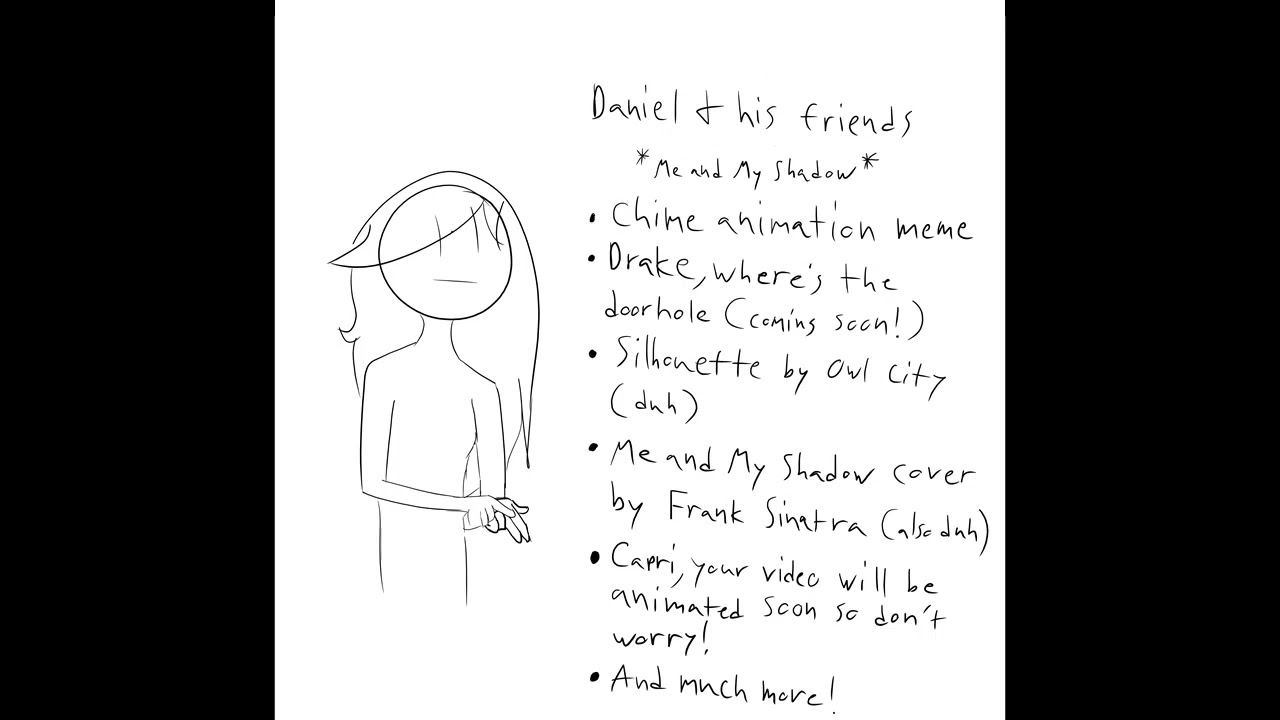 Daniel & his friends
*Me and My Shadow*
• Chime animation meme
• Drake, where's the
doorhole (coming soon!)
• Silhouette by Owl City
(duh)
• Me and My Shadow cover
by Frank Sinatra (also duh)
• Capri, your video will be
animated soon so don't
worry!
• And much more!